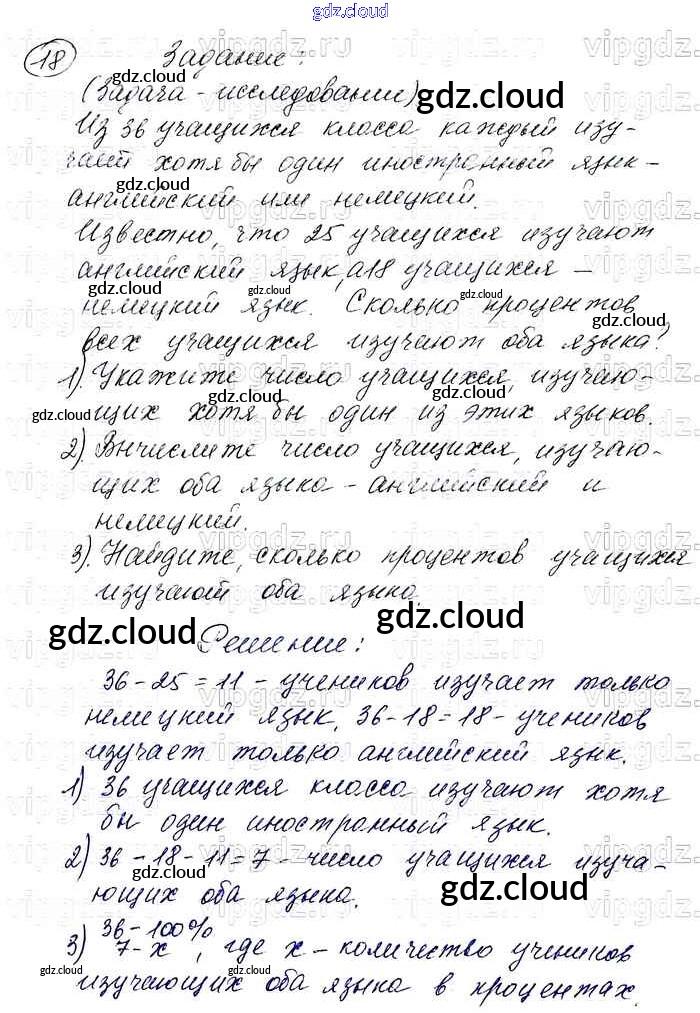 gdz.cloud
18 Задание:
(Задача - исследование)
Из 36 учащихся класса каждый изу-
чает хотя бы один иностранный язык -
английский или немецкий.
Известно, что 25 учащихся изучают
английский язык, а 18 учащихся -
немецкий язык. Сколько процентов
всех учащихся изучают оба языка?
1). Укажите число учащихся, изучаю-
щих хотя бы один из этих языков.
2). Вычислите число учащихся, изучаю-
щих оба языка - английский и
немецкий.
3). Найдите, сколько процентов учащихся
изучают оба языка
Решение:
36 - 25 = 11 - учеников изучает только
немецкий язык, 36 - 18 = 18 - учеников
изучает только английский язык.
1) 36 учащихся класса изучают хотя
бы один иностранный язык.
2) 36 - 18 - 11 = 7 - число учащихся изуча-
ющих оба языка.
3) 36 - 100%
7 - x , где x - количество учеников
изучающих оба языка в процентах.